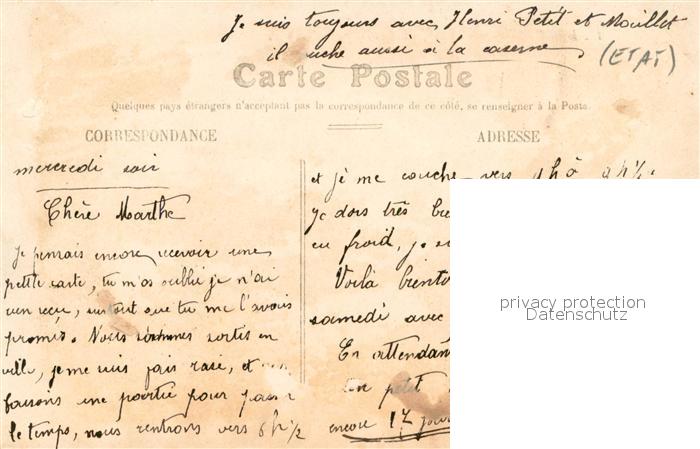 Je suis toujours avec Henri Petit et Mouillet
il couche aussi à la caserne
(ETAT)
Carte Postale
Quelques pays étrangers n'acceptant pas la correspondance de ce côté, se renseigner à la Poste.
CORRESPONDANCE
ADRESSE
mercredi soir
Chère Marthe
Je pensais encore recevoir une
petite carte, tu m'as oublié je n'ai
rien reçu, surtout que tu me l'avais
promis. Nous sommes sortis en
ville, je me suis fais rasé, et
faisons une partie pour passer
le temps, nous rentrons vers 6 h ½
et je me couche vers 9 h ½
je dors très
eu froid, je
Voilà
samedi avec
En
un petit
encore 17
privacy protection
Datenschutz